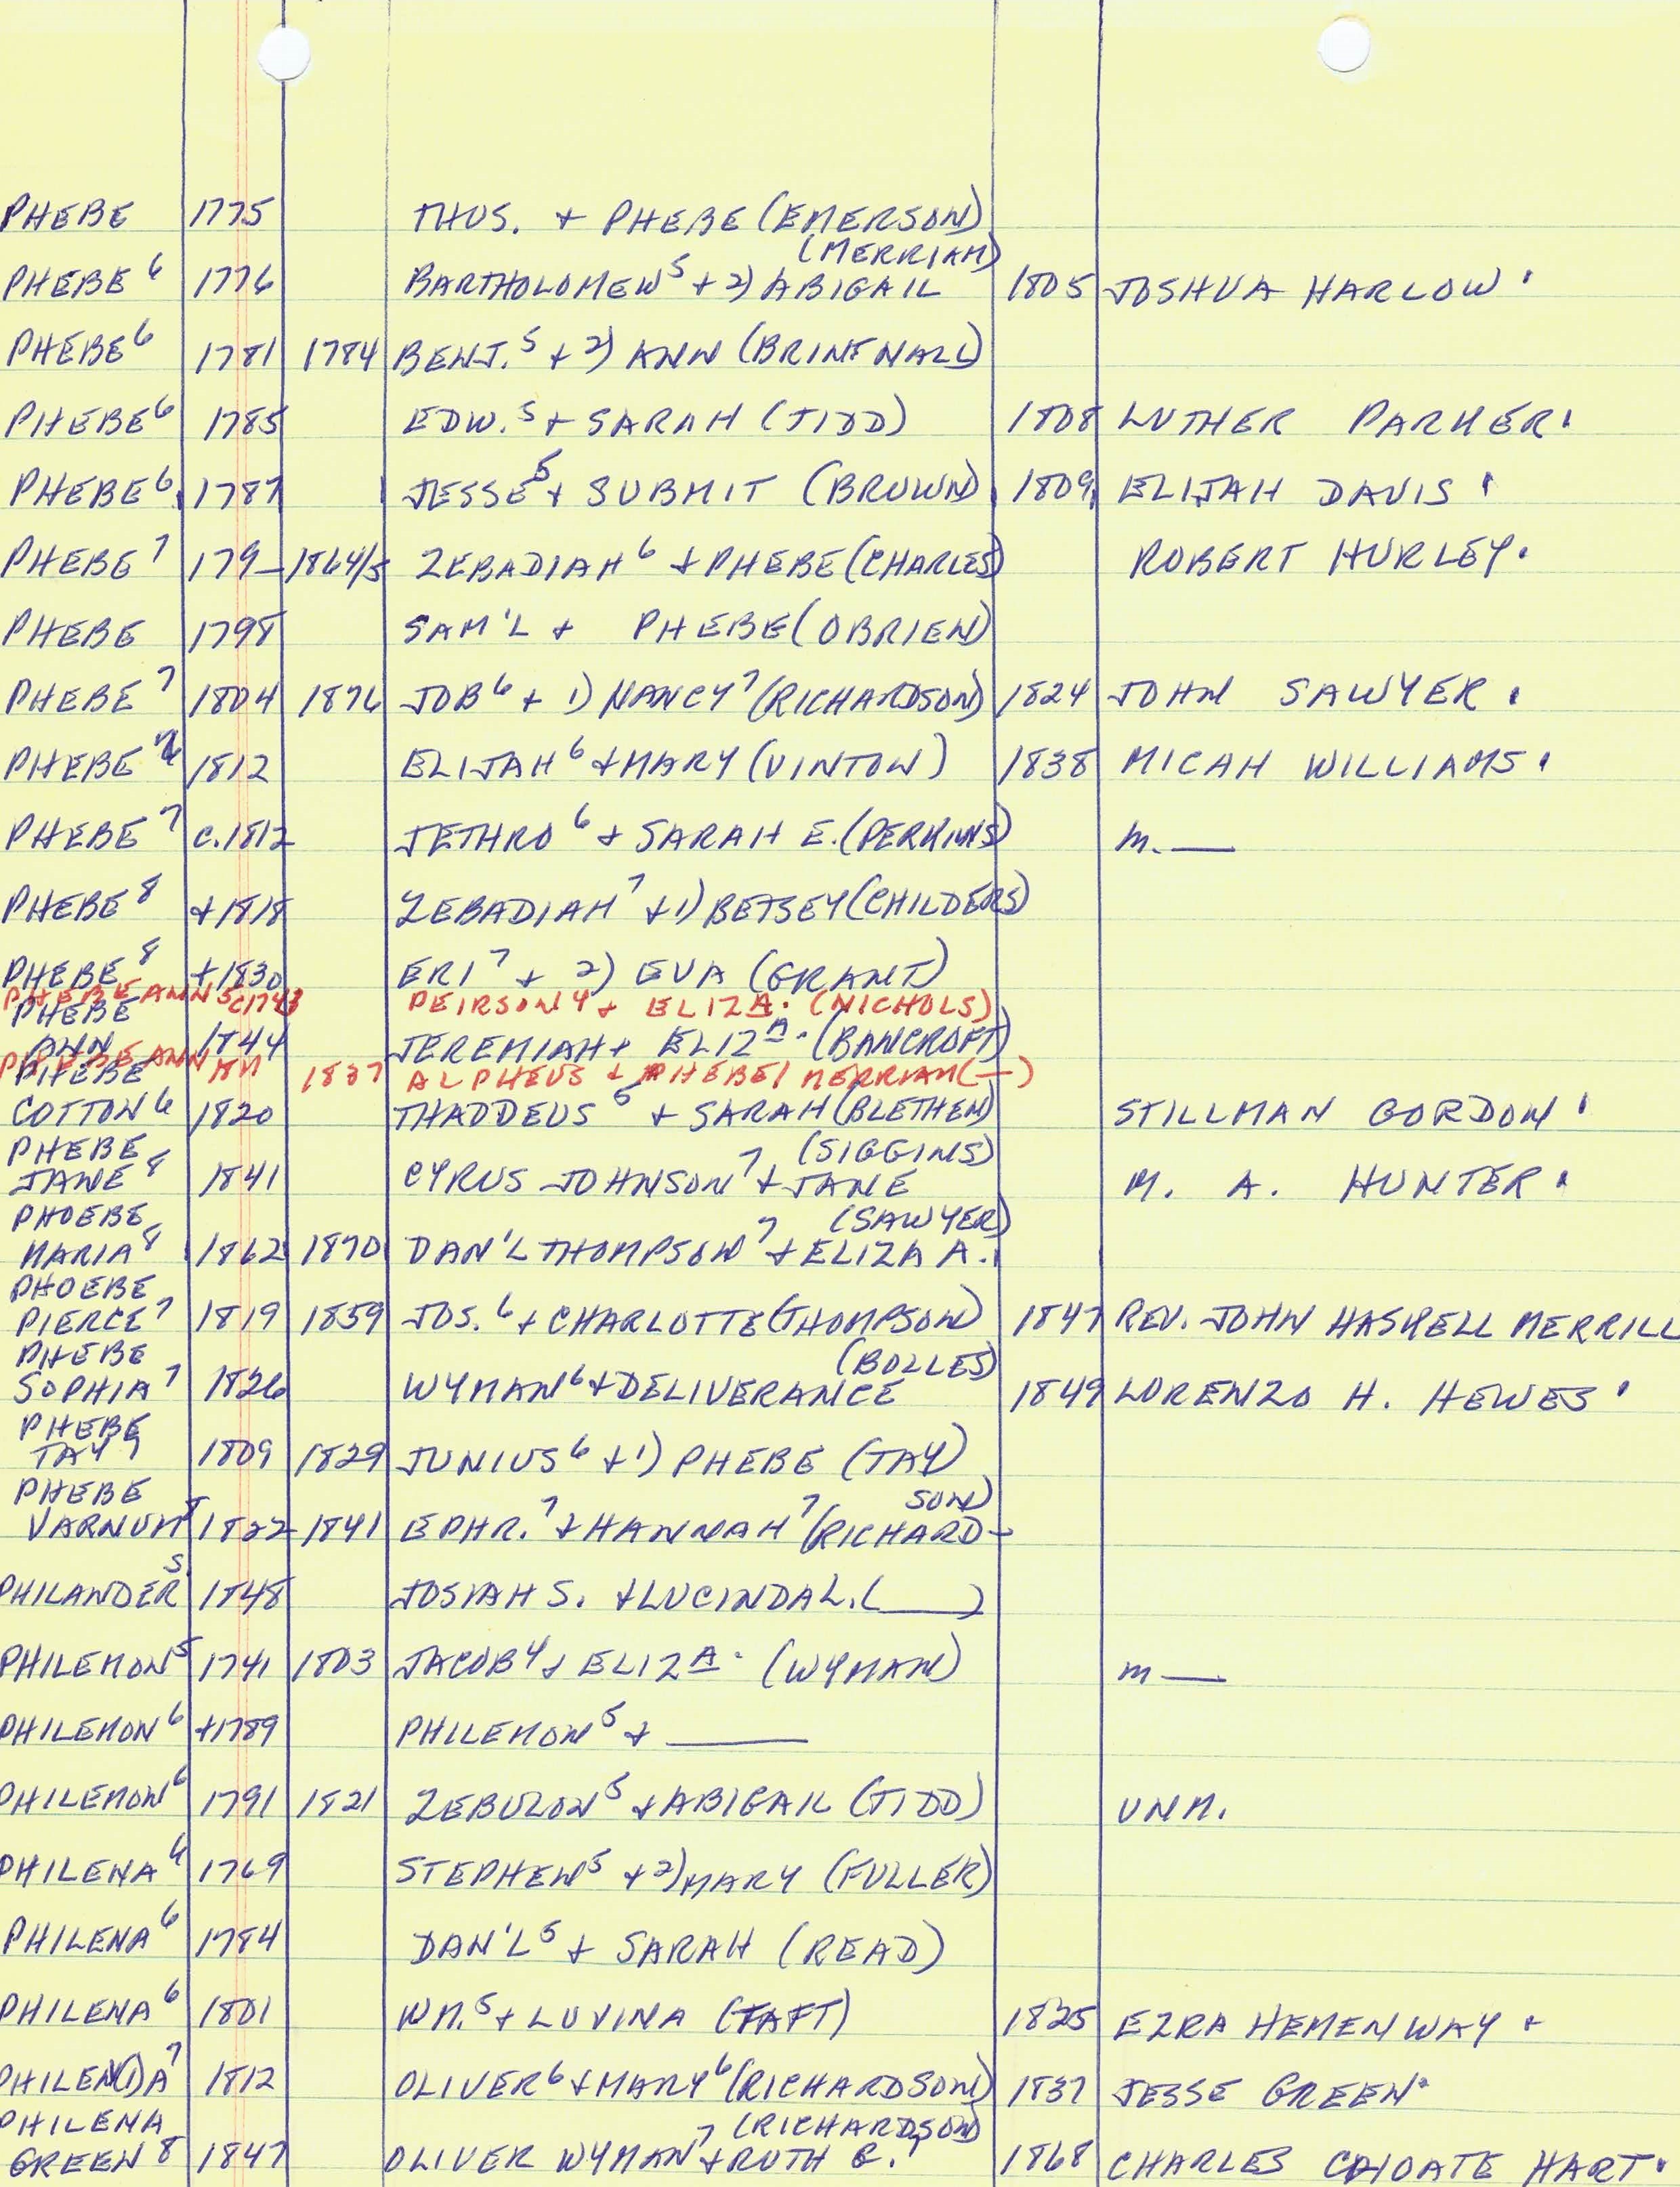 PHEBE 1775 THOS. + PHEBE (EMERSON)
(MERRIAM)
PHEBE 6 1776 BARTHOLOMEW 5 + 2) ABIGAIL 1805 JOSHUA HARLOW.
PHEBE 6 1781 1784 BENJ. 5 + 2) ANN (BRINTNALL)
PHEBE 6 1785 EDW. 5 + SARAH (TIDD) 1808 LUTHER PARKER.
PHEBE 6 1787 JESSE 5 + SUBMIT (BROWN) 1809 ELIJAH DAVIS.
PHEBE 7 179_ 1864/5 ZEBADIAH 6 + PHEBE (CHARLES) ROBERT HURLEY.
PHEBE 1798 SAM'L + PHEBE (OBRIEN)
PHEBE 7 1804 1876 JOB 6 + 1) NANCY 7 (RICHARDSON) 1824 JOHN SAWYER.
PHEBE 1812 ELIJAH 6 + MARY (VINTON) 1838 MICAH WILLIAMS.
PHEBE 7 C.1812 JETHRO 6 + SARAH E. (PERKINS) m. __
PHEBE 8 +1818 ZEBADIAH 7 + 1) BETSEY (CHILDERS)
PHEBE 8 +1830 ERI 7 + 2) EVA (GRANT)
PHEBE ANN 5 C1743 PEIRSON 4 + ELIZA. (NICHOLS)
PHEBE
ANN 1844 JEREMIAH + ELIZA. (BANCROFT)
PHEBE ANN 1837 ALPHEUS + PHEBE / MERRIAM (—)
PHEBE
COTTON 6 1820 THADDEUS 5 + SARAH (BLETHEN) STILLMAN GORDON.
PHEBE (SIGGINS)
JANE 8 1841 CYRUS JOHNSON 7 + JANE M. A. HUNTER.
PHOEBE (SAWYER)
MARIA 8 1862 1870 DAN'L THOMPSON 7 + ELIZA A.
PHOEBE
PIERCE 7 1819 1859 JOS. 6 + CHARLOTTE (THOMPSON) 1847 REV. JOHN HASKELL MERRILL
PHEBE (BOLLES)
SOPHIA 7 1826 WYMAN 6 + DELIVERANCE 1849 LORENZO H. HEWES.
PHEBE
TAY 7 1809 1829 JUNIUS 6 + 1) PHEBE (TAY)
PHEBE SON)
VARNUM 8 1822 1841 EPHR. 7 + HANNAH 7 (RICHARD-
PHILANDER S. 1848 JOSIAH S. + LUCINDA L. (____)
PHILEMON 5 1741 1803 JACOB 4 + ELIZA. (WYMAN) m __
PHILEMON 6 +1789 PHILEMON 5 + ____
PHILEMON 6 1791 1821 ZEBULON 5 + ABIGAIL (TIDD) UNM.
PHILENA 6 1769 STEPHEN 5 + 2) MARY (FULLER)
PHILENA 6 1784 DAN'L 5 + SARAH (READ)
PHILENA 6 1801 WM. 5 + LUVINA (TAFT) 1825 EZRA HEMENWAY.
PHILEN(D)A 7 1812 OLIVER 6 + MARY 6 (RICHARDSON) 1837 JESSE GREEN.
PHILENA (RICHARDSON)
GREEN 8 1847 OLIVER WYMAN 7 + RUTH 1868 CHARLES CHOATE HART.